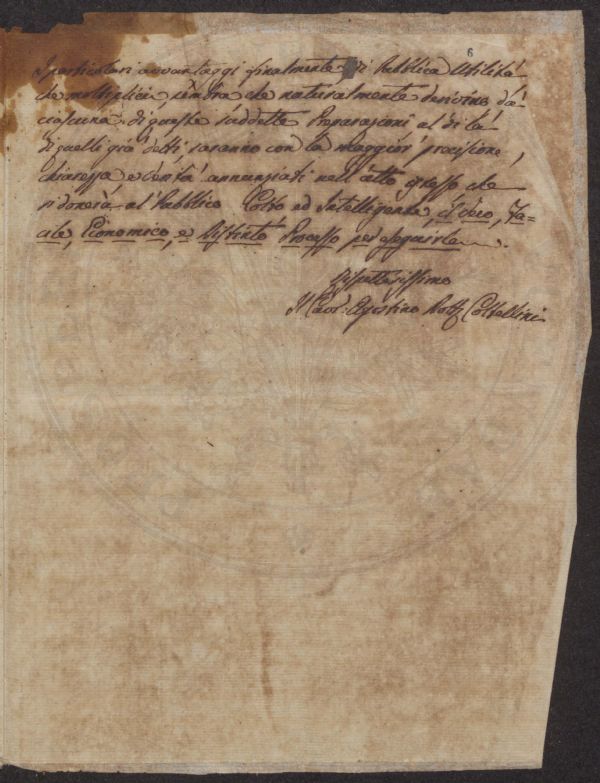 6
I particolari avvantaggi finalmente di Pubblica Utilità
che moltiplici, sembra che naturalmente derivino da
ciascuna di queste suddette Preparazioni, al di là
di quelli già detti, saranno con la maggior precisione,
chiarezza e verità annunziati nell'atto stesso che
si donerà al Pubblico Colto ed Intelligente, il Vero, Fa=
cile, Economico, e Distinto Processo per eseguirle.
Rispettosissimo
Il Cavr. Agostino Coltellini